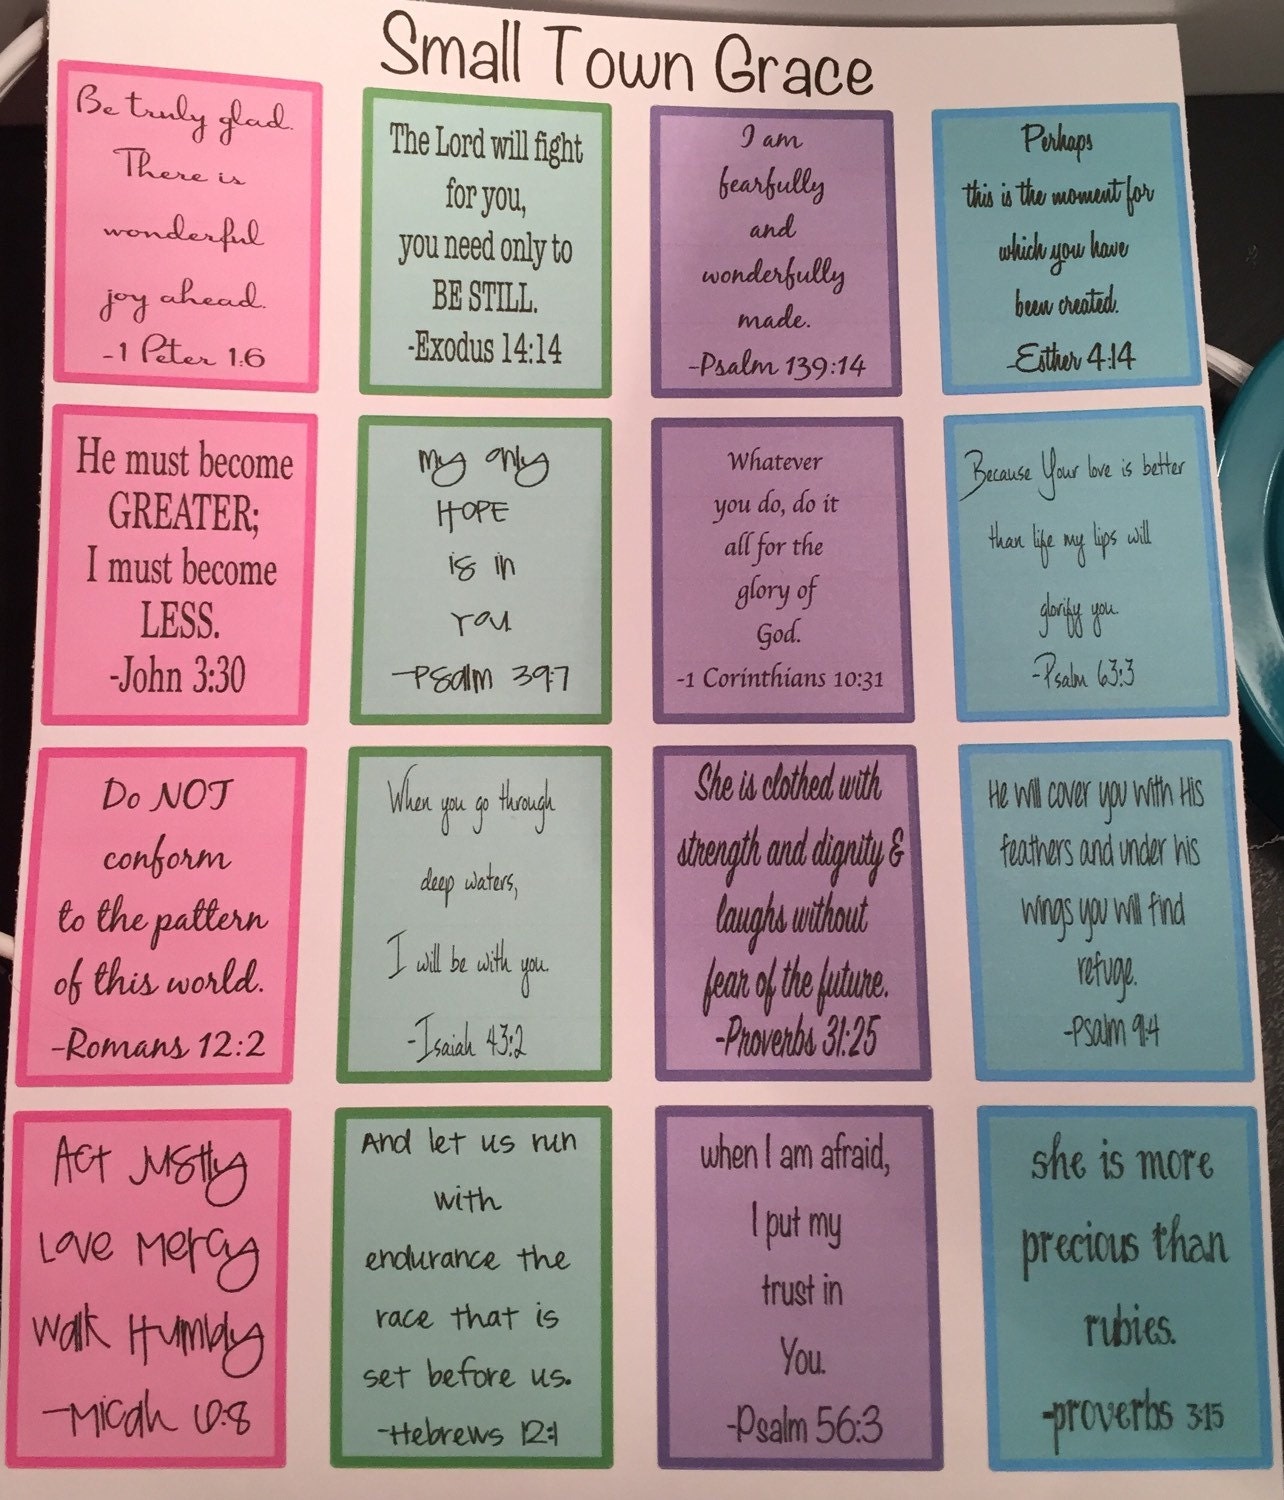 Small Town Grace
Be truly glad.
There is
wonderful
joy ahead.
-1 Peter 1:6
The Lord will fight
for you,
you need only to
BE STILL.
-Exodus 14:14
I am
fearfully
and
wonderfully
made.
-Psalm 139:14
Perhaps
this is the moment for
which you have
been created.
-Esther 4:14
He must become
GREATER;
I must become
LESS.
-John 3:30
My only
HOPE
is in
You
-Psalm 39:7
Whatever
you do, do it
all for the
glory of
God.
-1 Corinthians 10:31
Because Your love is better
than life my lips will
glorify you.
-Psalm 63:3
Do NOT
conform
to the pattern
of this world.
-Romans 12:2
When you go through
deep waters,
I will be with you.
-Isaiah 43:2
She is clothed with
strength and dignity &
laughs without
fear of the future.
-Proverbs 31:25
He will cover you with His
feathers and under his
wings you will find
refuge.
-Psalm 91:4
Act Justly
Love Mercy
Walk Humbly
-Micah 6:8
And let us run
with
endurance the
race that is
set before us.
-Hebrews 12:1
when I am afraid,
I put my
trust in
You.
-Psalm 56:3
she is more
precious than
rubies.
-proverbs 3:15